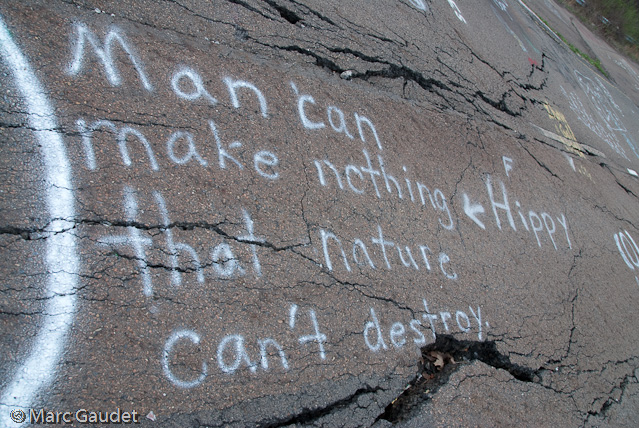 Man can
make nothing
that nature
can't destroy.
← Hippy
© Marc Gaudet